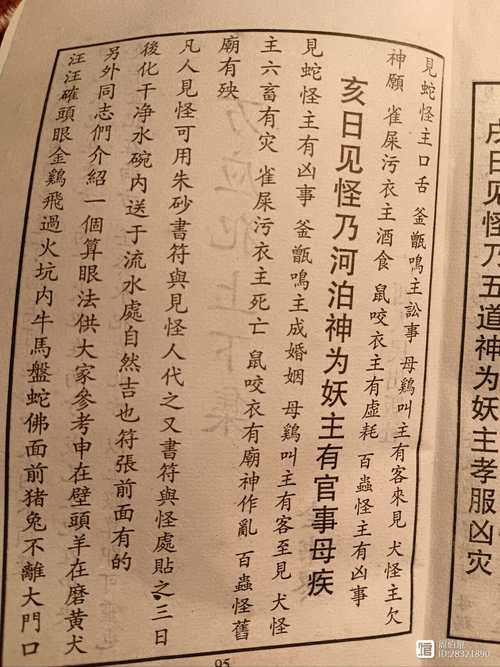 戌日见怪乃五道神为妖主孝服凶灾
見蛇怪主口舌 釜甑鳴主訟事 母鷄叫主有客來見 犬怪主欠
神願 雀屎污衣主酒食 鼠咬衣主有虛耗 百蟲怪主有凶事
亥日见怪乃河泊神为妖主有官事母疾
見蛇怪主有凶事 釜甑鳴主成婚姻 母鷄叫主有客至見 犬怪
主六畜有灾 雀屎污衣主死亡 鼠咬衣有廟神作亂 百蟲怪舊
廟有殃
凡人見怪可用朱砂書符與見怪人代之又書符與怪處貼之三日
後化干净水碗内送于流水處自然吉也符張前面有的
另外同志們介紹一個算眼法供大家參考申在壁頭羊在磨黄犬
汪汪確頭眼金鷄飛過火坑内牛馬盤蛇佛面前猪兔不離大門口
95
ID:28321890